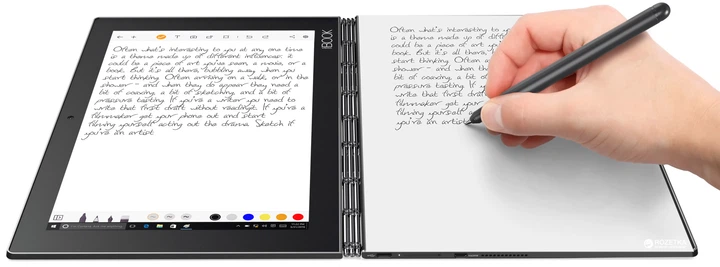 Often what's interesting to you at any one time
is a theme made up of different influences. it
could be a piece of art you've seen, a movie, or a
book. But it's all there, bubbling away when you
start thinking. Often arriving on a walk, or in the
shower - and when they do appear they need a
bit of coaxing, a bit of sketching, and a bit of
pressure testing. If you're a writer you need to
write that first draft without reading it. If you're a
filmmaker get your phone out and start
filming yourself acting out the drama. Sketch if
you're an artist
Often what's interesting to y
is a theme made up of di
could be a piece of art y
book. But it's all there,
start thinking. Often
shower - and when t
bit of coaxing, a bit
pressure testing. If y
write that first draft
filmmaker get your pho
filming yourself act
you're an artist